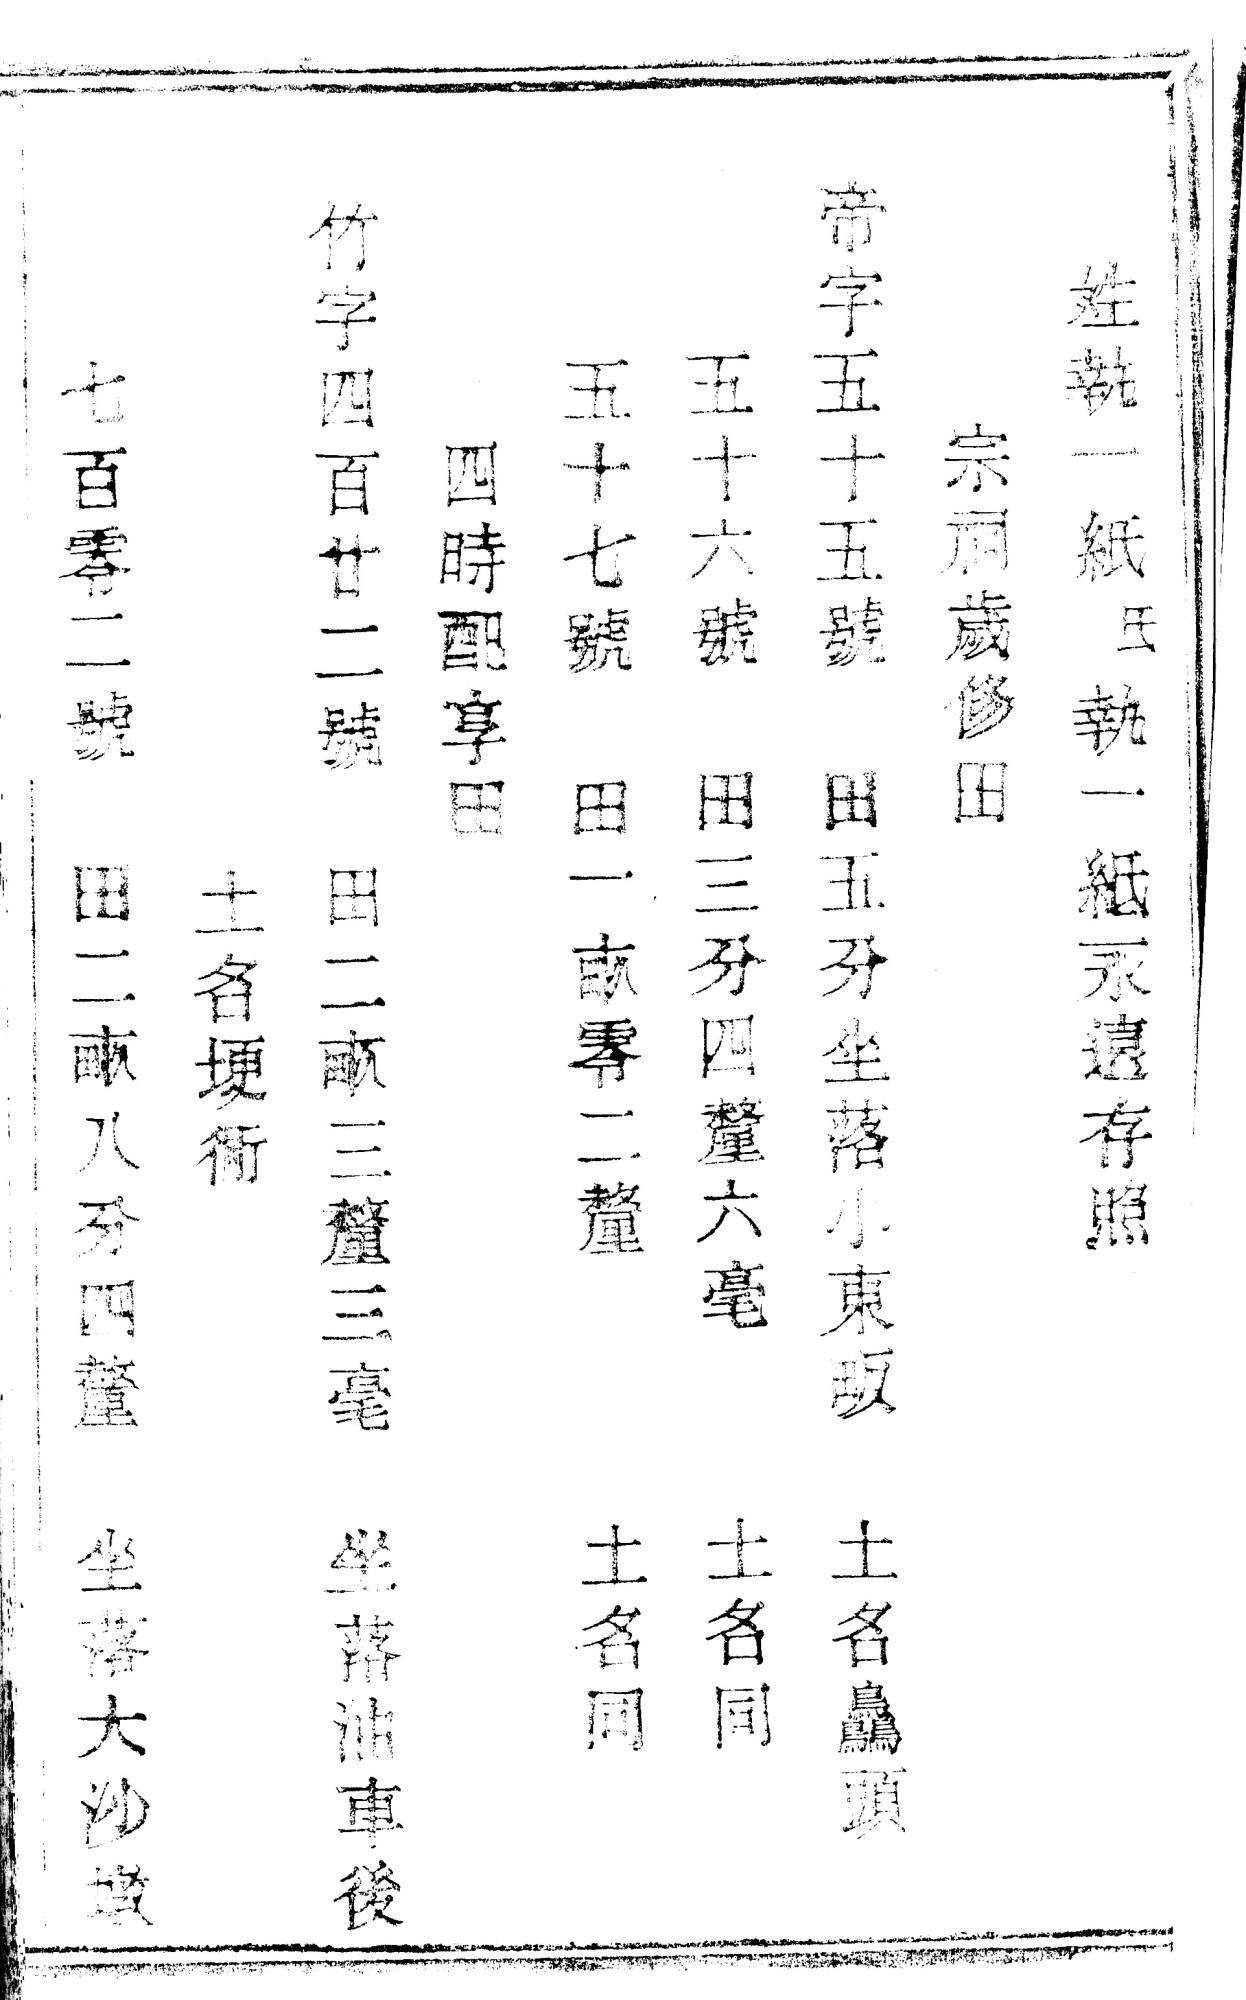 姓執一紙氏執一紙永遠存照
宗祠歲修田
帝字五十五號　田五分坐落小東畈　土名鱻頭
五十六號　田三分四釐六毫　土名同
五十七號　田一畝零二釐　土名同
四時配享田
竹字四百廿二號　田二畝三釐三毫　坐落油車後
土名埂衕
七百零二號　田二畝八分四釐　坐落大沙墩